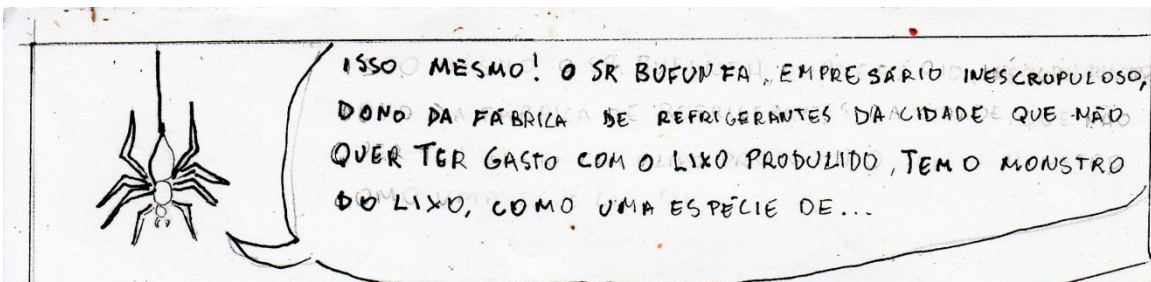 ISSO MESMO! O SR BUFUNFA, EMPRESÁRIO INESCRUPULOSO,
DONO DA FÁBRICA DE REFRIGERANTES DA CIDADE QUE NÃO
QUER TER GASTO COM O LIXO PRODUZIDO, TEM O MONSTRO
DO LIXO, COMO UMA ESPÉCIE DE...